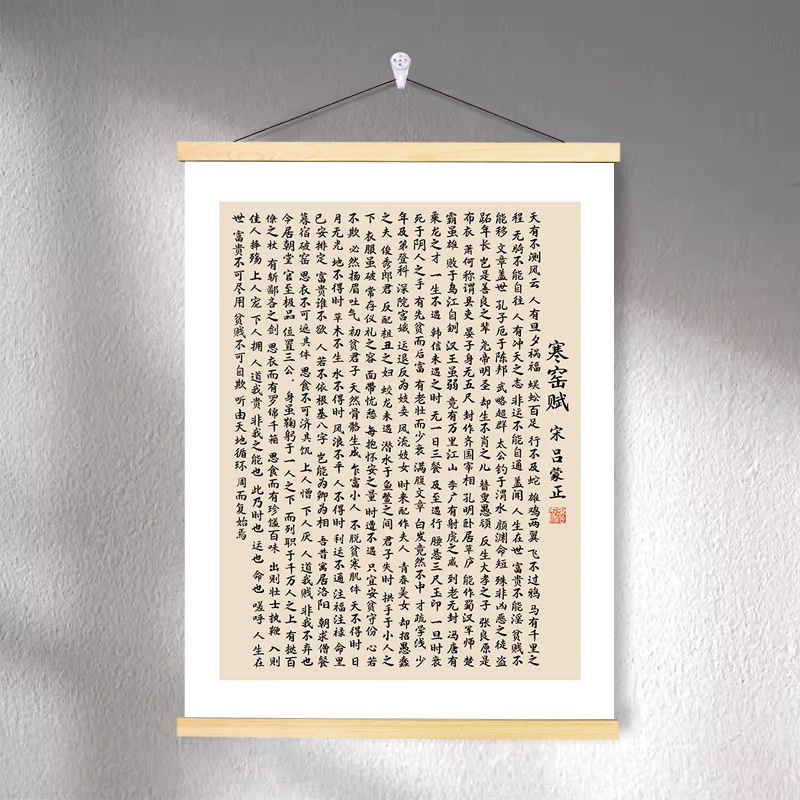 寒窑赋 宋 吕蒙正
天有不测风云 人有旦夕祸福 蜈蚣百足 行不及蛇 雄鸡两翼 飞不过鸦 马有千里之
程 无骑不能自往 人有冲天之志 非运不能自通 盖闻 人生在世 富贵不能淫 贫贱不
能移 文章盖世 孔子厄于陈邦 武略超群 太公钓于渭水 颜渊命短 殊非凶恶之徒 盗
跖年长 岂是善良之辈 尧帝明圣 却生不肖之儿 瞽叟愚顽 反生大孝之子 张良原是
布衣 萧何称谓县吏 晏子身无五尺 封作齐国宰相 孔明卧居草庐 能作蜀汉军师 楚
霸虽雄 败于乌江自刎 汉王虽弱 竟有万里江山 李广有射虎之威 到老无封 冯唐有
乘龙之才 一生不遇 韩信未遇之时 无一日三餐 及至遇行 腰悬三尺玉印 一旦时衰
死于阴人之手 有先贫而后富 有老壮而少衰 满腹文章 白发竟然不中 才疏学浅 少
年及第登科 深院宫娥 运退反为妓妾 风流妓女 时来配作夫人 青春美女 却招愚蠢
之夫 俊秀郎君 反配粗丑之妇 蛟龙未遇 潜水于鱼鳖之间 君子失时 拱手于小人之
下 衣服虽破 常存仪礼之容 面带忧愁 每抱怀安之量 时遭不遇 只宜安贫守份 心若
不欺 必然扬眉吐气 初贫君子 天然骨骼生成 乍富小人 不脱贫寒肌体 天不得时 日
月无光 地不得时 草木不生 水不得时 风浪不平 人不得时 利运不通 注福注禄 命里
已安排定 富贵谁不欲 人若不依根基八字 岂能为卿为相 吾昔寓居洛阳 朝求僧餐
暮宿破窑 思衣不可遮其体 思食不可济其饥 上人憎 下人厌 人道我贱 非我不弃也
今居朝堂 官至极品 位置三公，身虽鞠躬于一人之下 而列职于千万人之上 有挞百
僚之杖 有斩鄙吝之剑 思衣而有罗锦千箱 思食而有珍馐百味 出则壮士执鞭 入则
佳人捧殇 上人宠 下人拥 人道我贵 非我之能也 此乃时也 运也 命也 嗟呼 人生在
世 富贵不可尽用 贫贱不可自欺 听由天地循环 周而复始焉